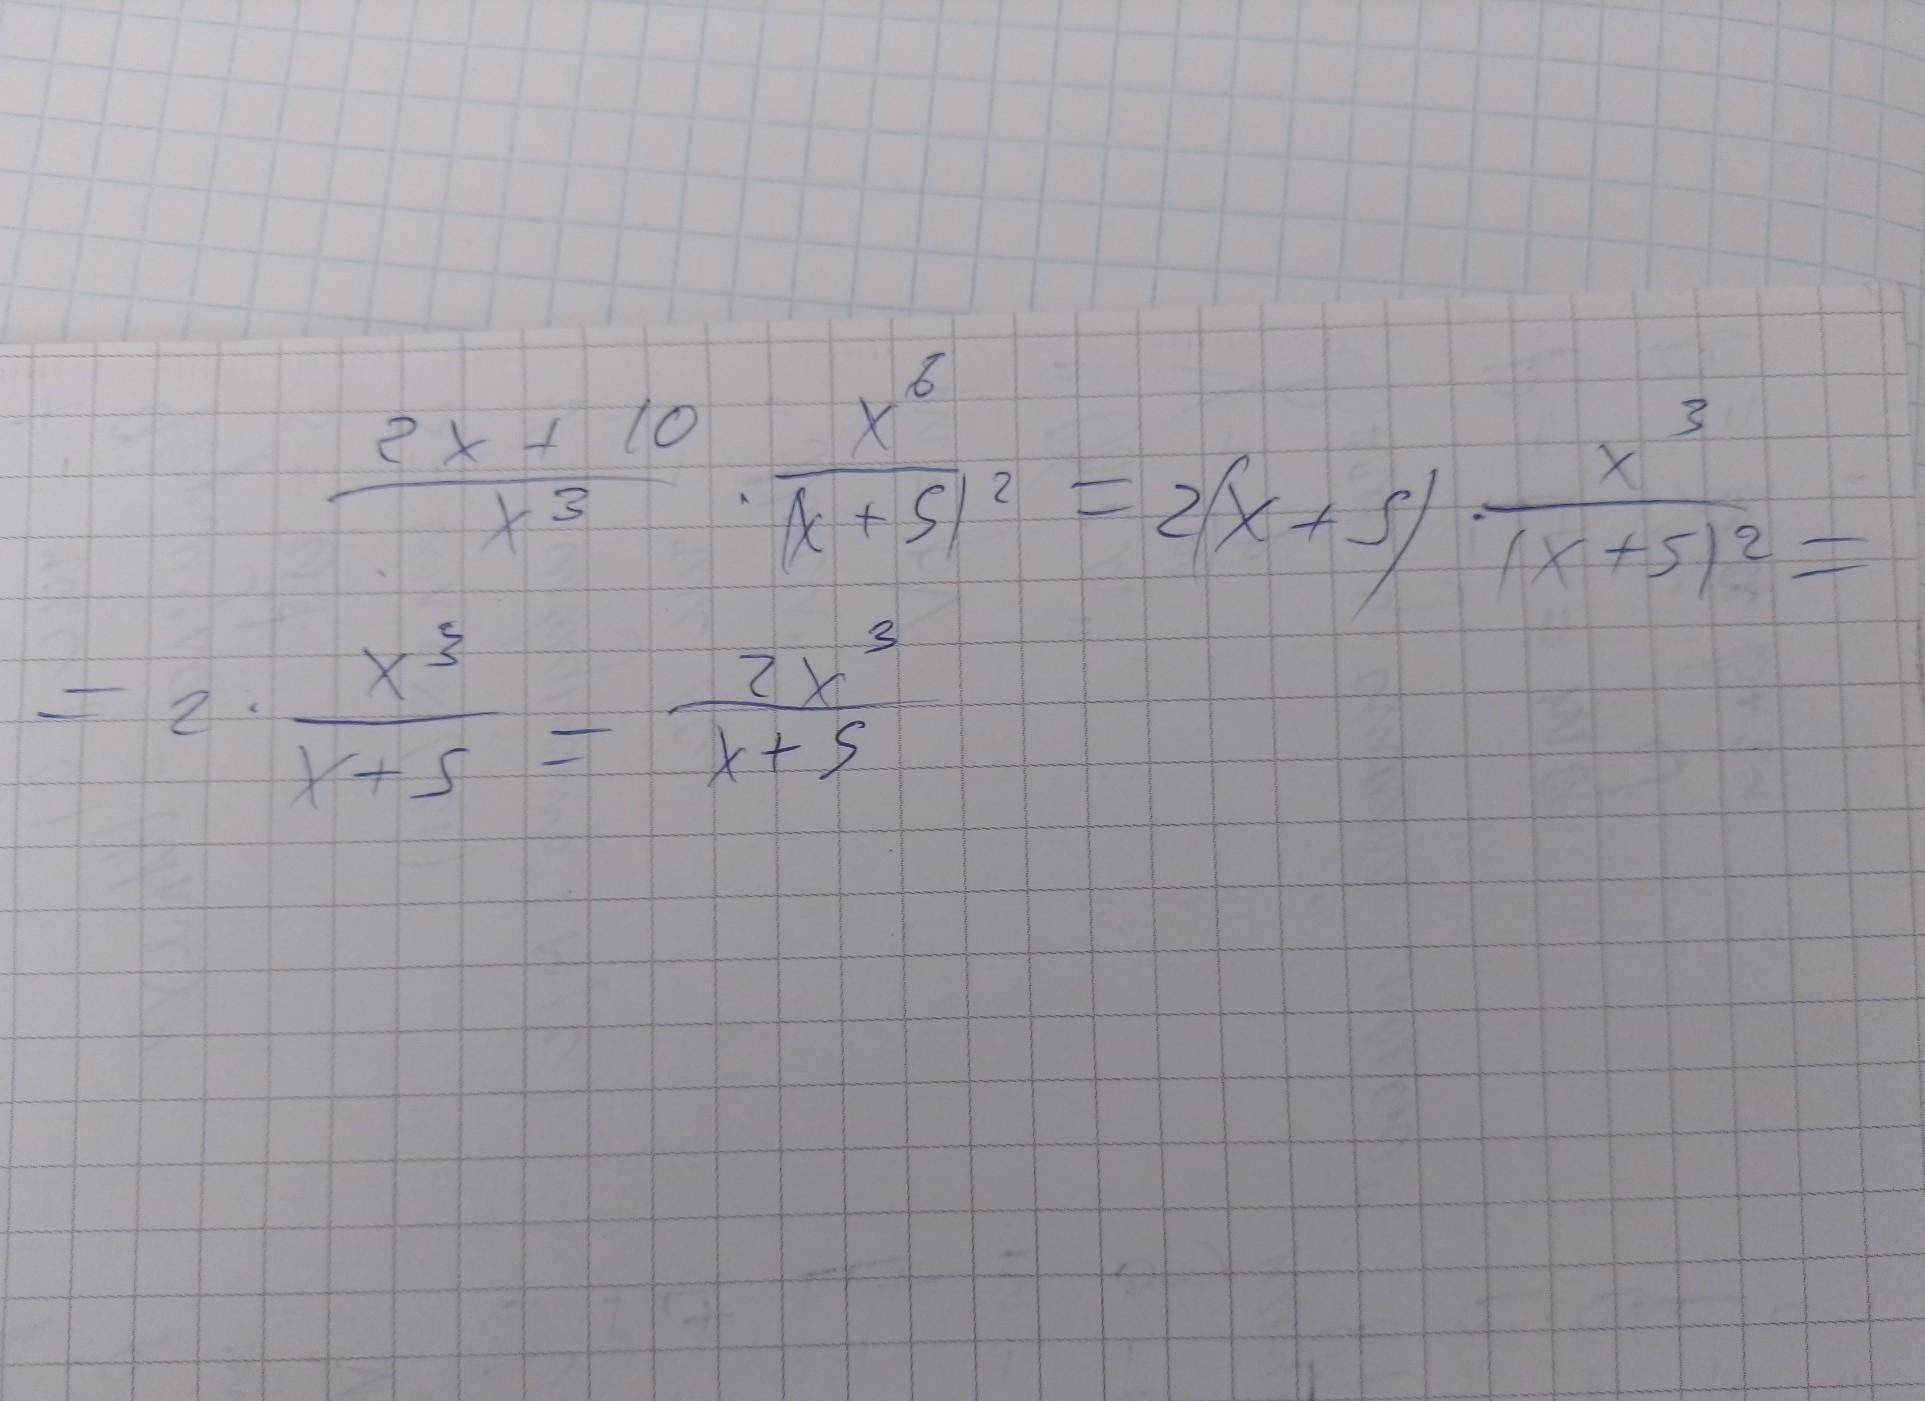 \frac{2x + 10}{x^3} \cdot \frac{x^6}{(x + 5)^2} = 2(x + 5) \cdot \frac{x^3}{(x + 5)^2} =
= 2 \cdot \frac{x^3}{x + 5} = \frac{2x^3}{x + 5}